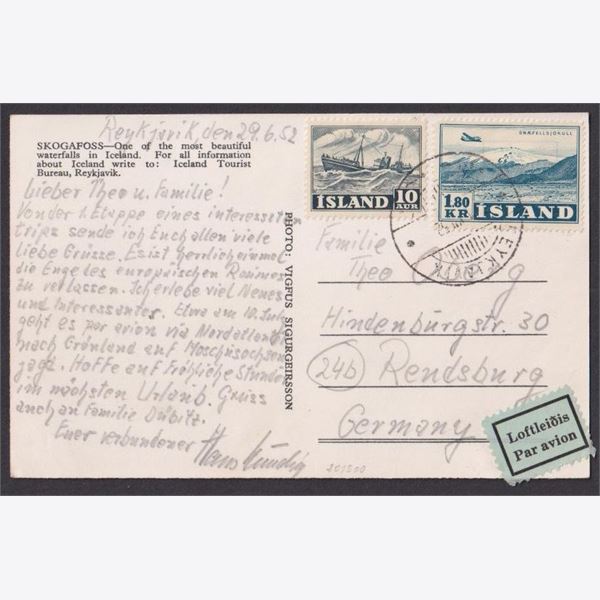 Reykjavik, den 29.6.52
SKOGAFOSS—One of the most beautiful
waterfalls in Iceland. For all information
about Iceland write to: Iceland Tourist
Bureau, Reykjavik.
Lieber Theo u. Familie!
Von der 1. Etappe eines interessanten
trips sende ich Euch allen viele
liebe Grüsse. Es ist herrlich einmal
die Enge des europäischen Raumes
zu verlassen. Ich erlebe viel Neues
und Interessantes. Etwa am 10. Juli
geht es par avion via Nordatlantik
nach Grönland auf Moschusochsen
jagd. Hoffe auf fröhliche Stunden
im nächsten Urlaub. Gruss
auch an Familie
Euer verbundener Hans
PHOTO: VIGFUS SIGURGEIRSSON
10
AUR
ÍSLAND
SNÆFELLSJÖKULL
1.80
KR
ÍSLAND
REYKJAVÍK
Familie
Theo
Hindenburgstr. 30
24b Rendsburg
Germany
Loftleiðis
Par avion